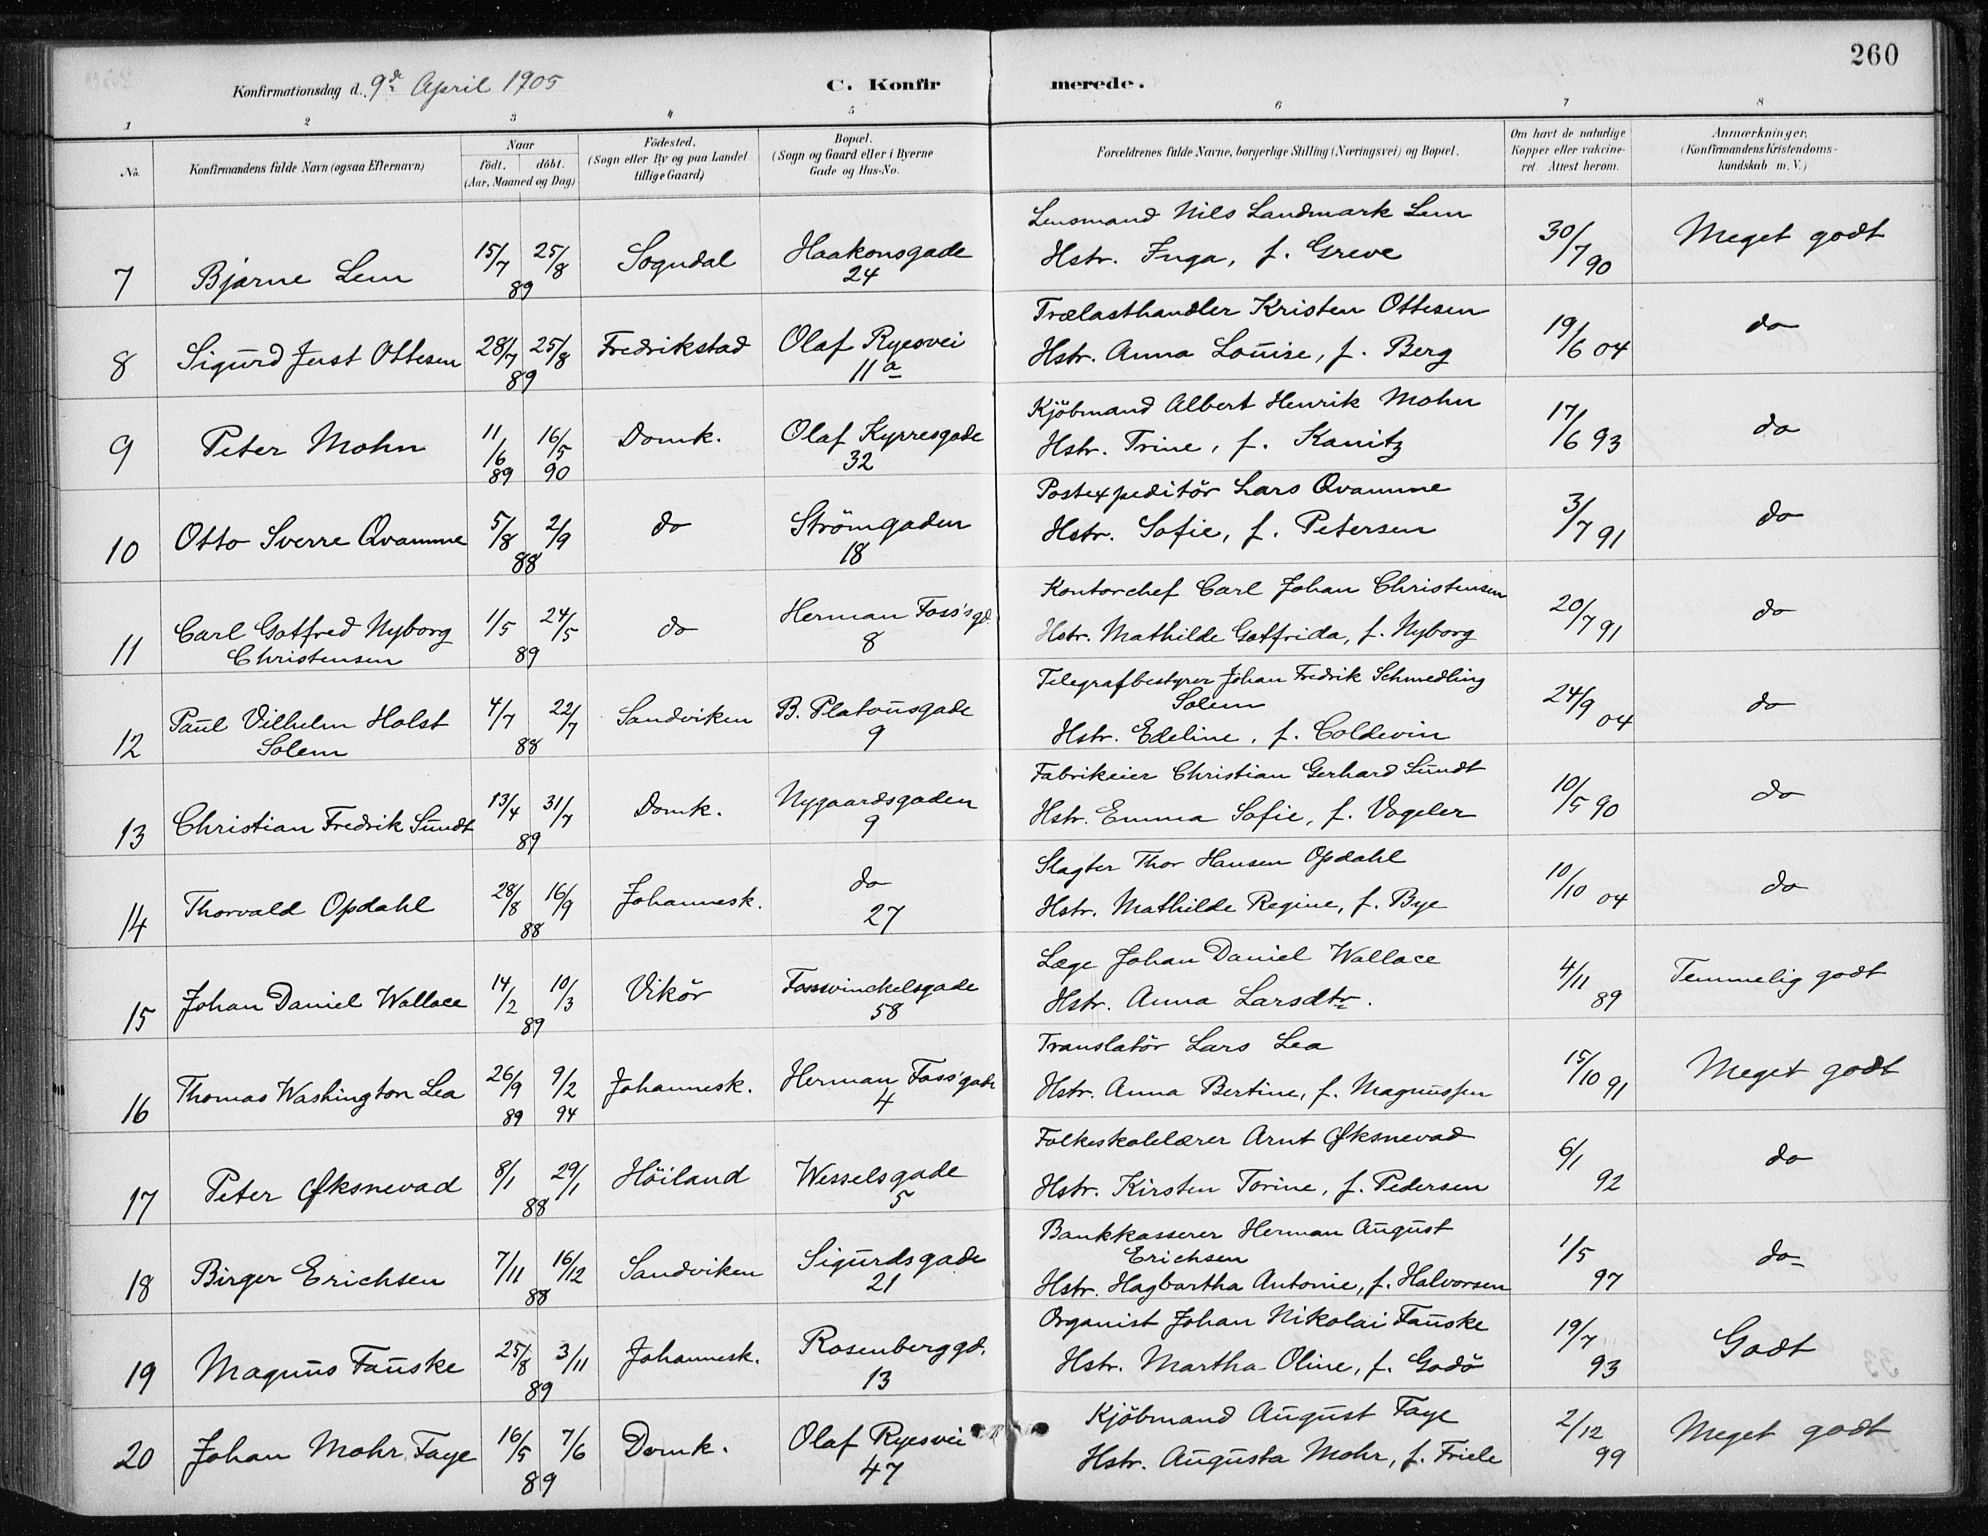 260
Konfirmationsdag d. 9de April 1905
C. Konfirmerede.
1 2 3 4 5 6 7 8
No.
Konfirmandens fulde Navn (ogsaa Efternavn)
Naar
födt. döbt.
(Aar, Maaned og Dag)
Födested.
(Sogn eller By og paa Landet
tillige Gaard)
Bopæl.
(Sogn og Gaard eller i Byerne
Gade og Hus-No.
Forældrenes fulde Navne, borgerlige Stilling (Næringsvei) og Bopæl.
Om havt de naturlige
Kopper eller vakcine-
ret. Attest herom.
Anmærkninger,
(Konfirmandens Kristendoms-
kundskab m. V.)
7 Bjarne Lem 15/7 25/8 89 Sogndal Haakonsgade 24
Lensmand Nils Landmark Lem
Hstr. Inga, f. Greve 30/7 90 Meget godt
8 Sigurd Just Ottesen 28/7 25/8 89 Fredrikstad Olaf Ryesvei 11a
Trælasthandler Kristen Ottesen
Hstr. Anna Louise, f. Berg 19/6 04 do
9 Peter Mohn 11/6 89 16/5 90 Domk. Olaf Kyrresgade 32
Kjöbmand Albert Henrik Mohn
Hstr. Trine, f. Kanitz 17/6 93 do
10 Otto Sverre Qvamme 5/8 2/9 88 do Strömgaden 18
Postexpeditör Lars Qvamme
Hstr. Sofie, f. Petersen 3/7 91 do
11 Carl Gotfred Nyborg
Christensen 1/5 24/5 89 do Herman Foss'sgd. 8
Kontorchef Carl Johan Christensen
Hstr. Mathilde Gotfrida, f. Nyborg 20/7 91 do
12 Paul Vilhelm Holst
Solem 4/7 22/7 88 Sandviken B. Platousgade 9
Telegrafbestyrer Johan Fredrik Schmedling
Solem
Hstr. Edeline, f. Coldevin 24/9 04 do
13 Christian Fredrik Sundt 13/4 31/7 89 Domk. Nygaardsgaden 9
Fabrikeier Christian Gerhard Sundt
Hstr. Emma Sofie, f. Vogeler 10/5 90 do
14 Thorvald Opdahl 28/8 16/9 88 Johannesk. do 27
Slagter Thor Hansen Opdahl
Hstr. Mathilde Regine, f. Bye 10/10 04 do
15 Johan Daniel Wallace 14/2 10/3 89 Vikör Fosswinckelsgade 58
Læge Johan Daniel Wallace
Hstr. Anna Larsdtr. 4/11 89 Temmelig godt
16 Thomas Washington Lea 26/9 89 9/2 94 Johannesk. Herman Foss'gade 4
Translatör Lars Lea
Hstr. Anna Bertine, f. Magnussen 15/10 91 Meget godt
17 Peter Øksnevad 8/1 29/1 88 Höiland Wesselsgade 5
Folkeskolelærer Arnt Øksnevad
Hstr. Kirsten Torine, f. Pedersen 6/1 92 do
18 Birger Erichsen 7/11 16/12 88 Sandviken Sigurdsgade 21
Bankkasserer Herman August
Erichsen
Hstr. Hagbartha Antonie, f. Halvorsen 1/5 97 do
19 Magnus Fauske 25/8 3/11 89 Johannesk. Rosenberggd. 13
Organist Johan Nikolai Fauske
Hstr. Martha Oline, f. Godö 19/7 93 Godt
20 Johan Mohr Faye 16/5 7/6 89 Domk. Olaf Ryesvei 47
Kjöbmand August Faye
Hstr. Augusta Mohr, f. Friele 2/12 99 Meget godt